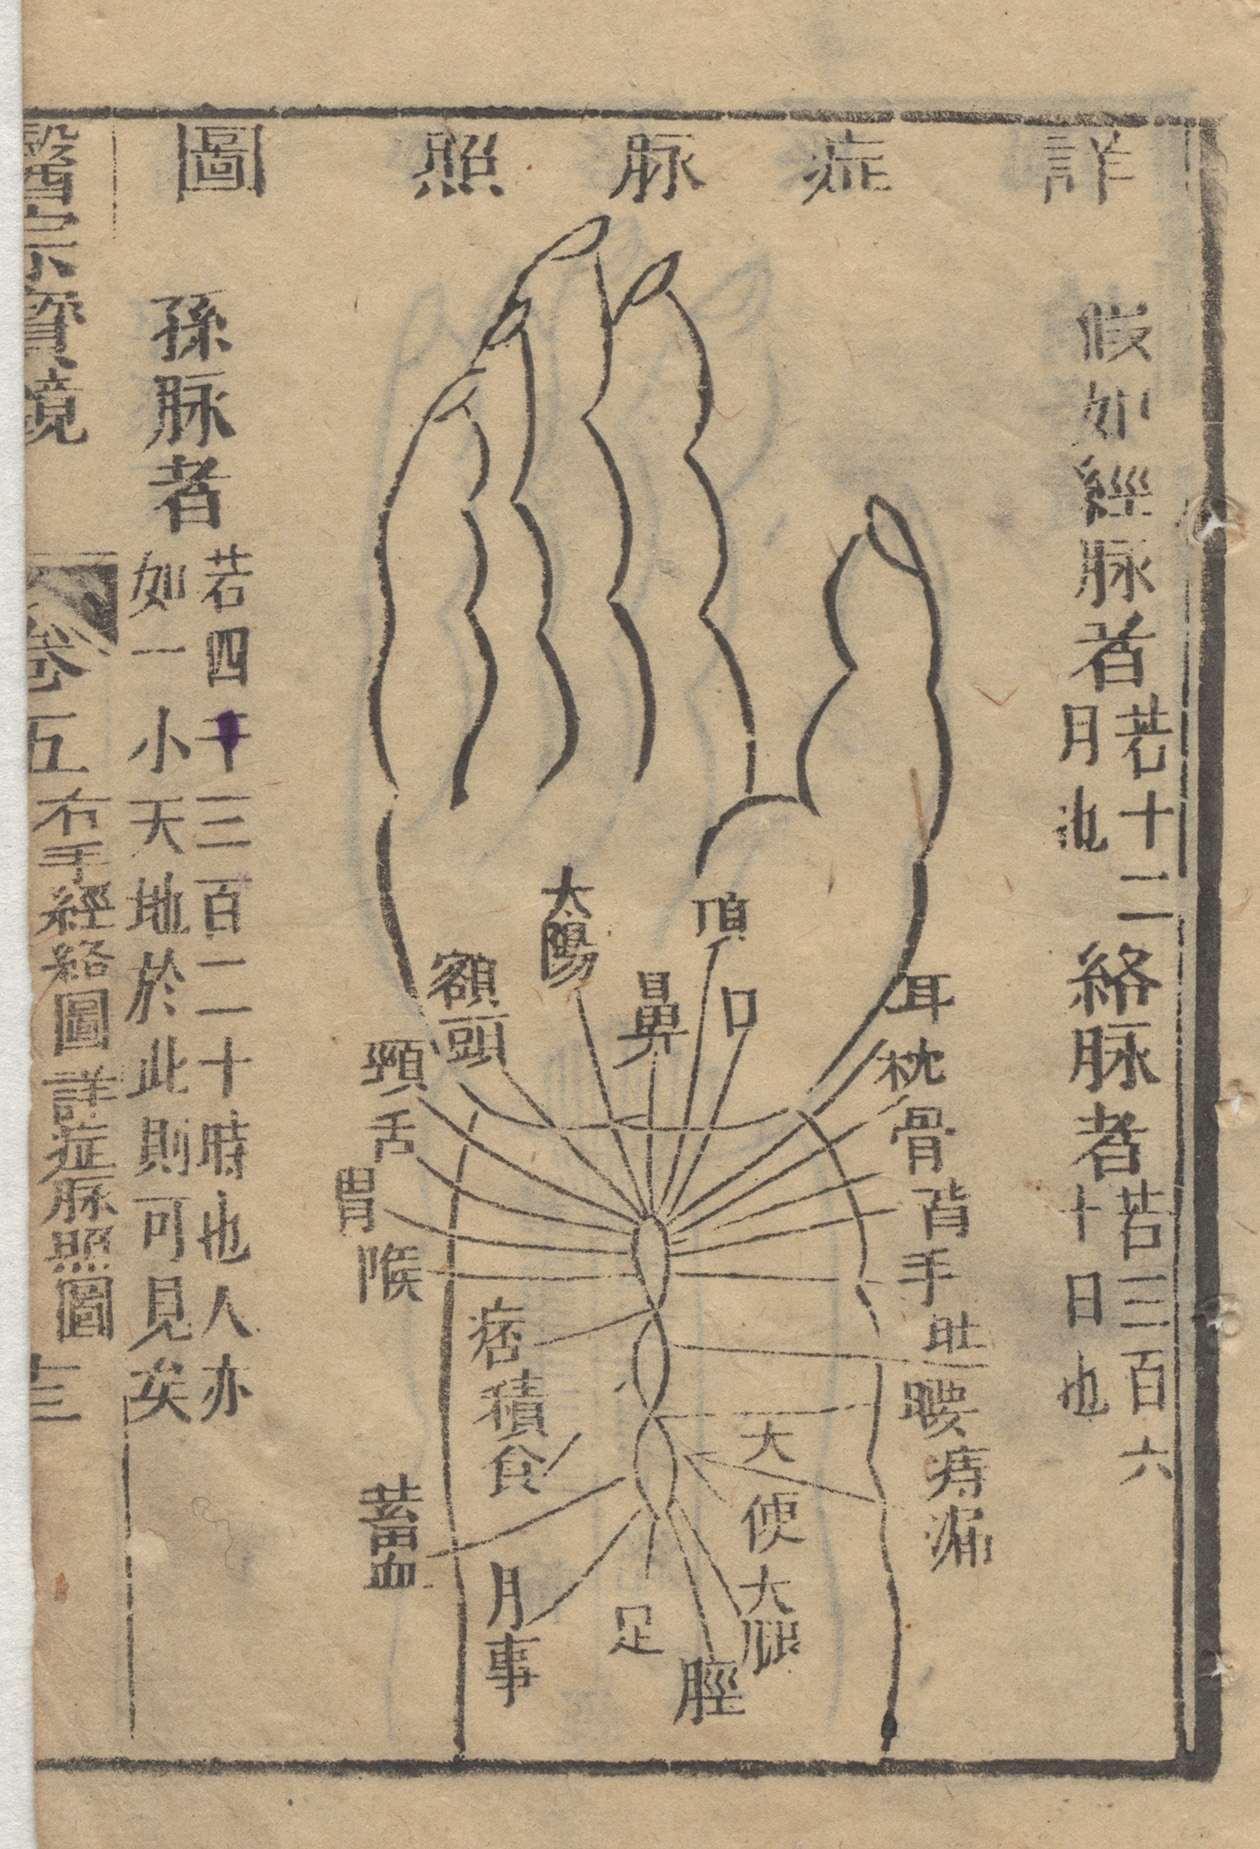 詳症脉照圖
假如經脉者若十二月也絡脉者若三百六十日也
頂
口
鼻
太陽
額頭
頸
舌
胃
喉
痞積食
蓄血
月事
足
脛
大腿
大便
耳
枕骨
背
手
肚
腰
痔漏
孫脉者若四千三百二十時也人亦如一小天地於此則可見矣
醫宗寶鏡
卷五
布手經絡圖
詳症脉照圖
十三